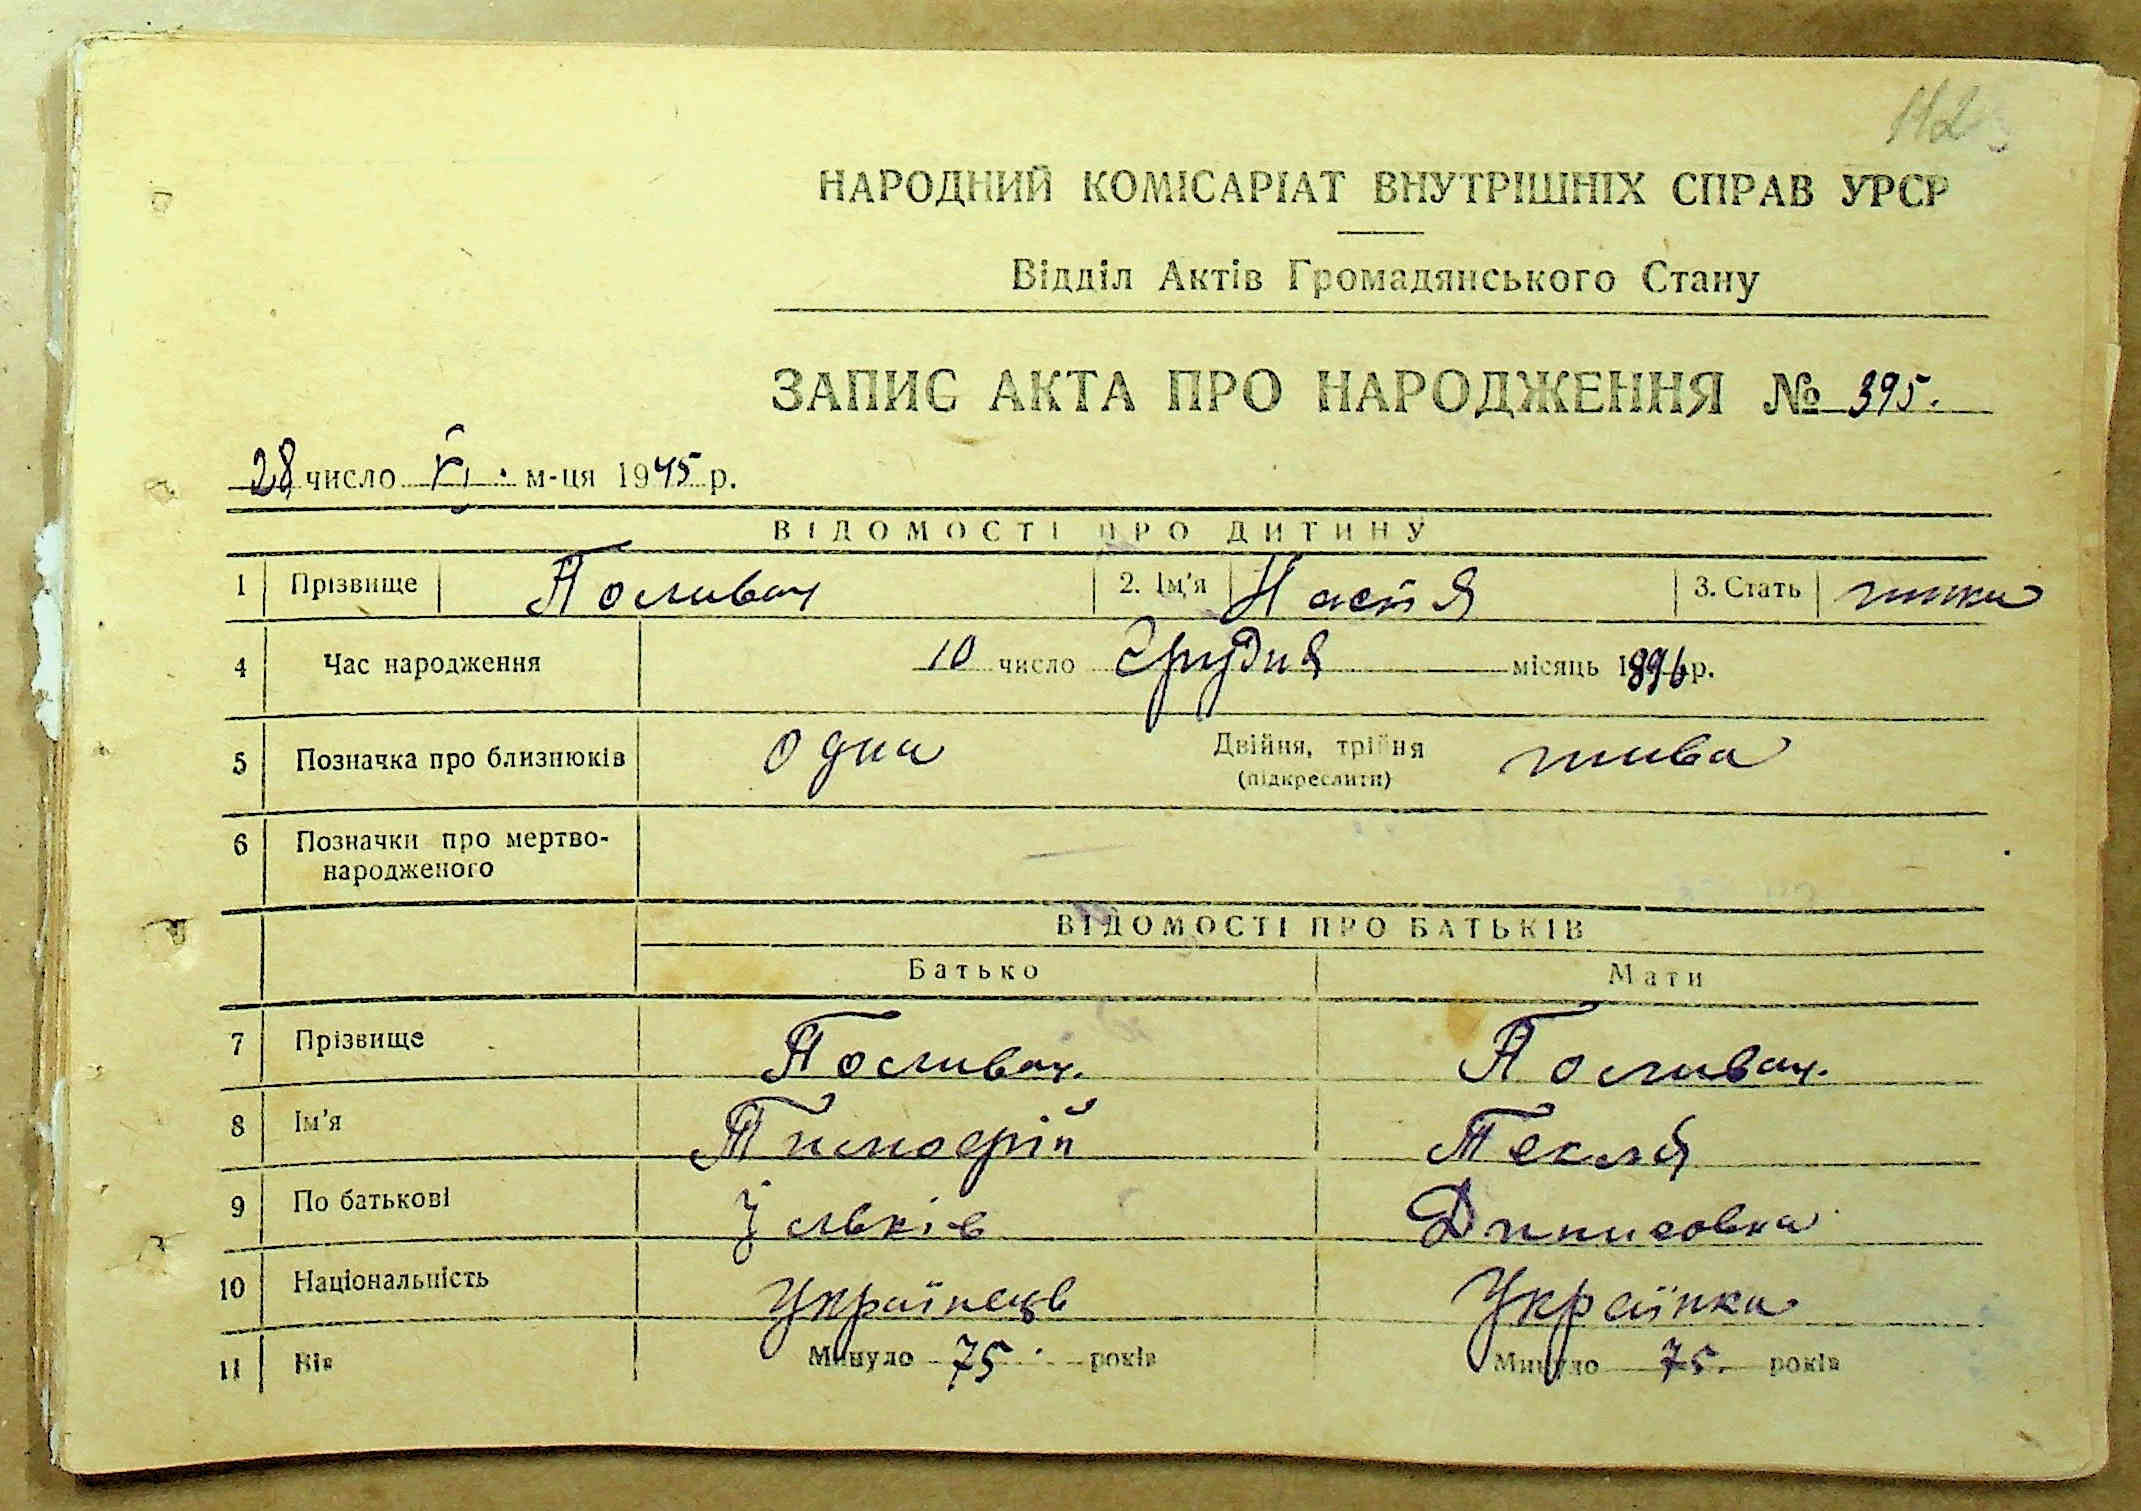 112
НАРОДНИЙ КОМІСАРІАТ ВНУТРІШНІХ СПРАВ УРСР
Відділ Актів Громадянського Стану
ЗАПИС АКТА ПРО НАРОДЖЕННЯ № 395.
28 число м-ця 1945 р.
ВІДОМОСТІ ПРО ДИТИНУ
1 Прізвище Поливач 2. Ім'я Настя 3. Стать жінка
4 Час народження 10 число Грудня місяць 1896 р.
5 Позначка про близнюків одна Двійня, трійня жива
(підкреслити)
6 Позначки про мертво-
народженого —
ВІДОМОСТІ ПРО БАТЬКІВ
Батько Мати
7 Прізвище Поливач. Поливач.
8 Ім'я Тимофій Текля
9 По батькові Ільків Динисовна
10 Національність Українець Українка
11 Вік Минуло 75 років Минуло 75. років